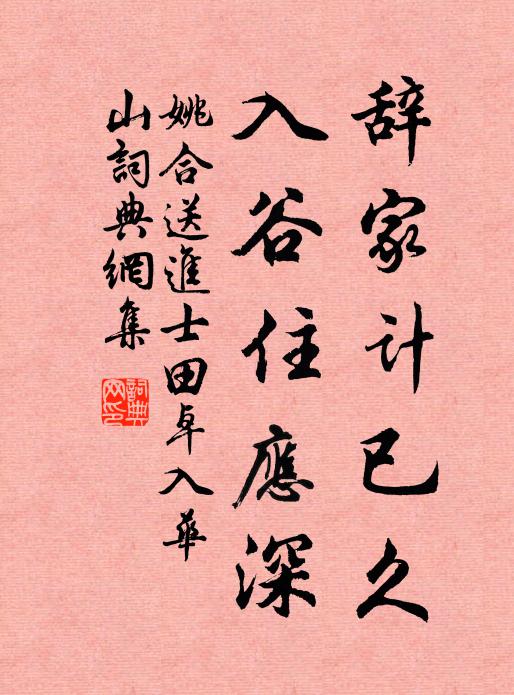 辞家计已久
入谷住應深
姚合送進士田卓入華
山詞典網集
詞典網印